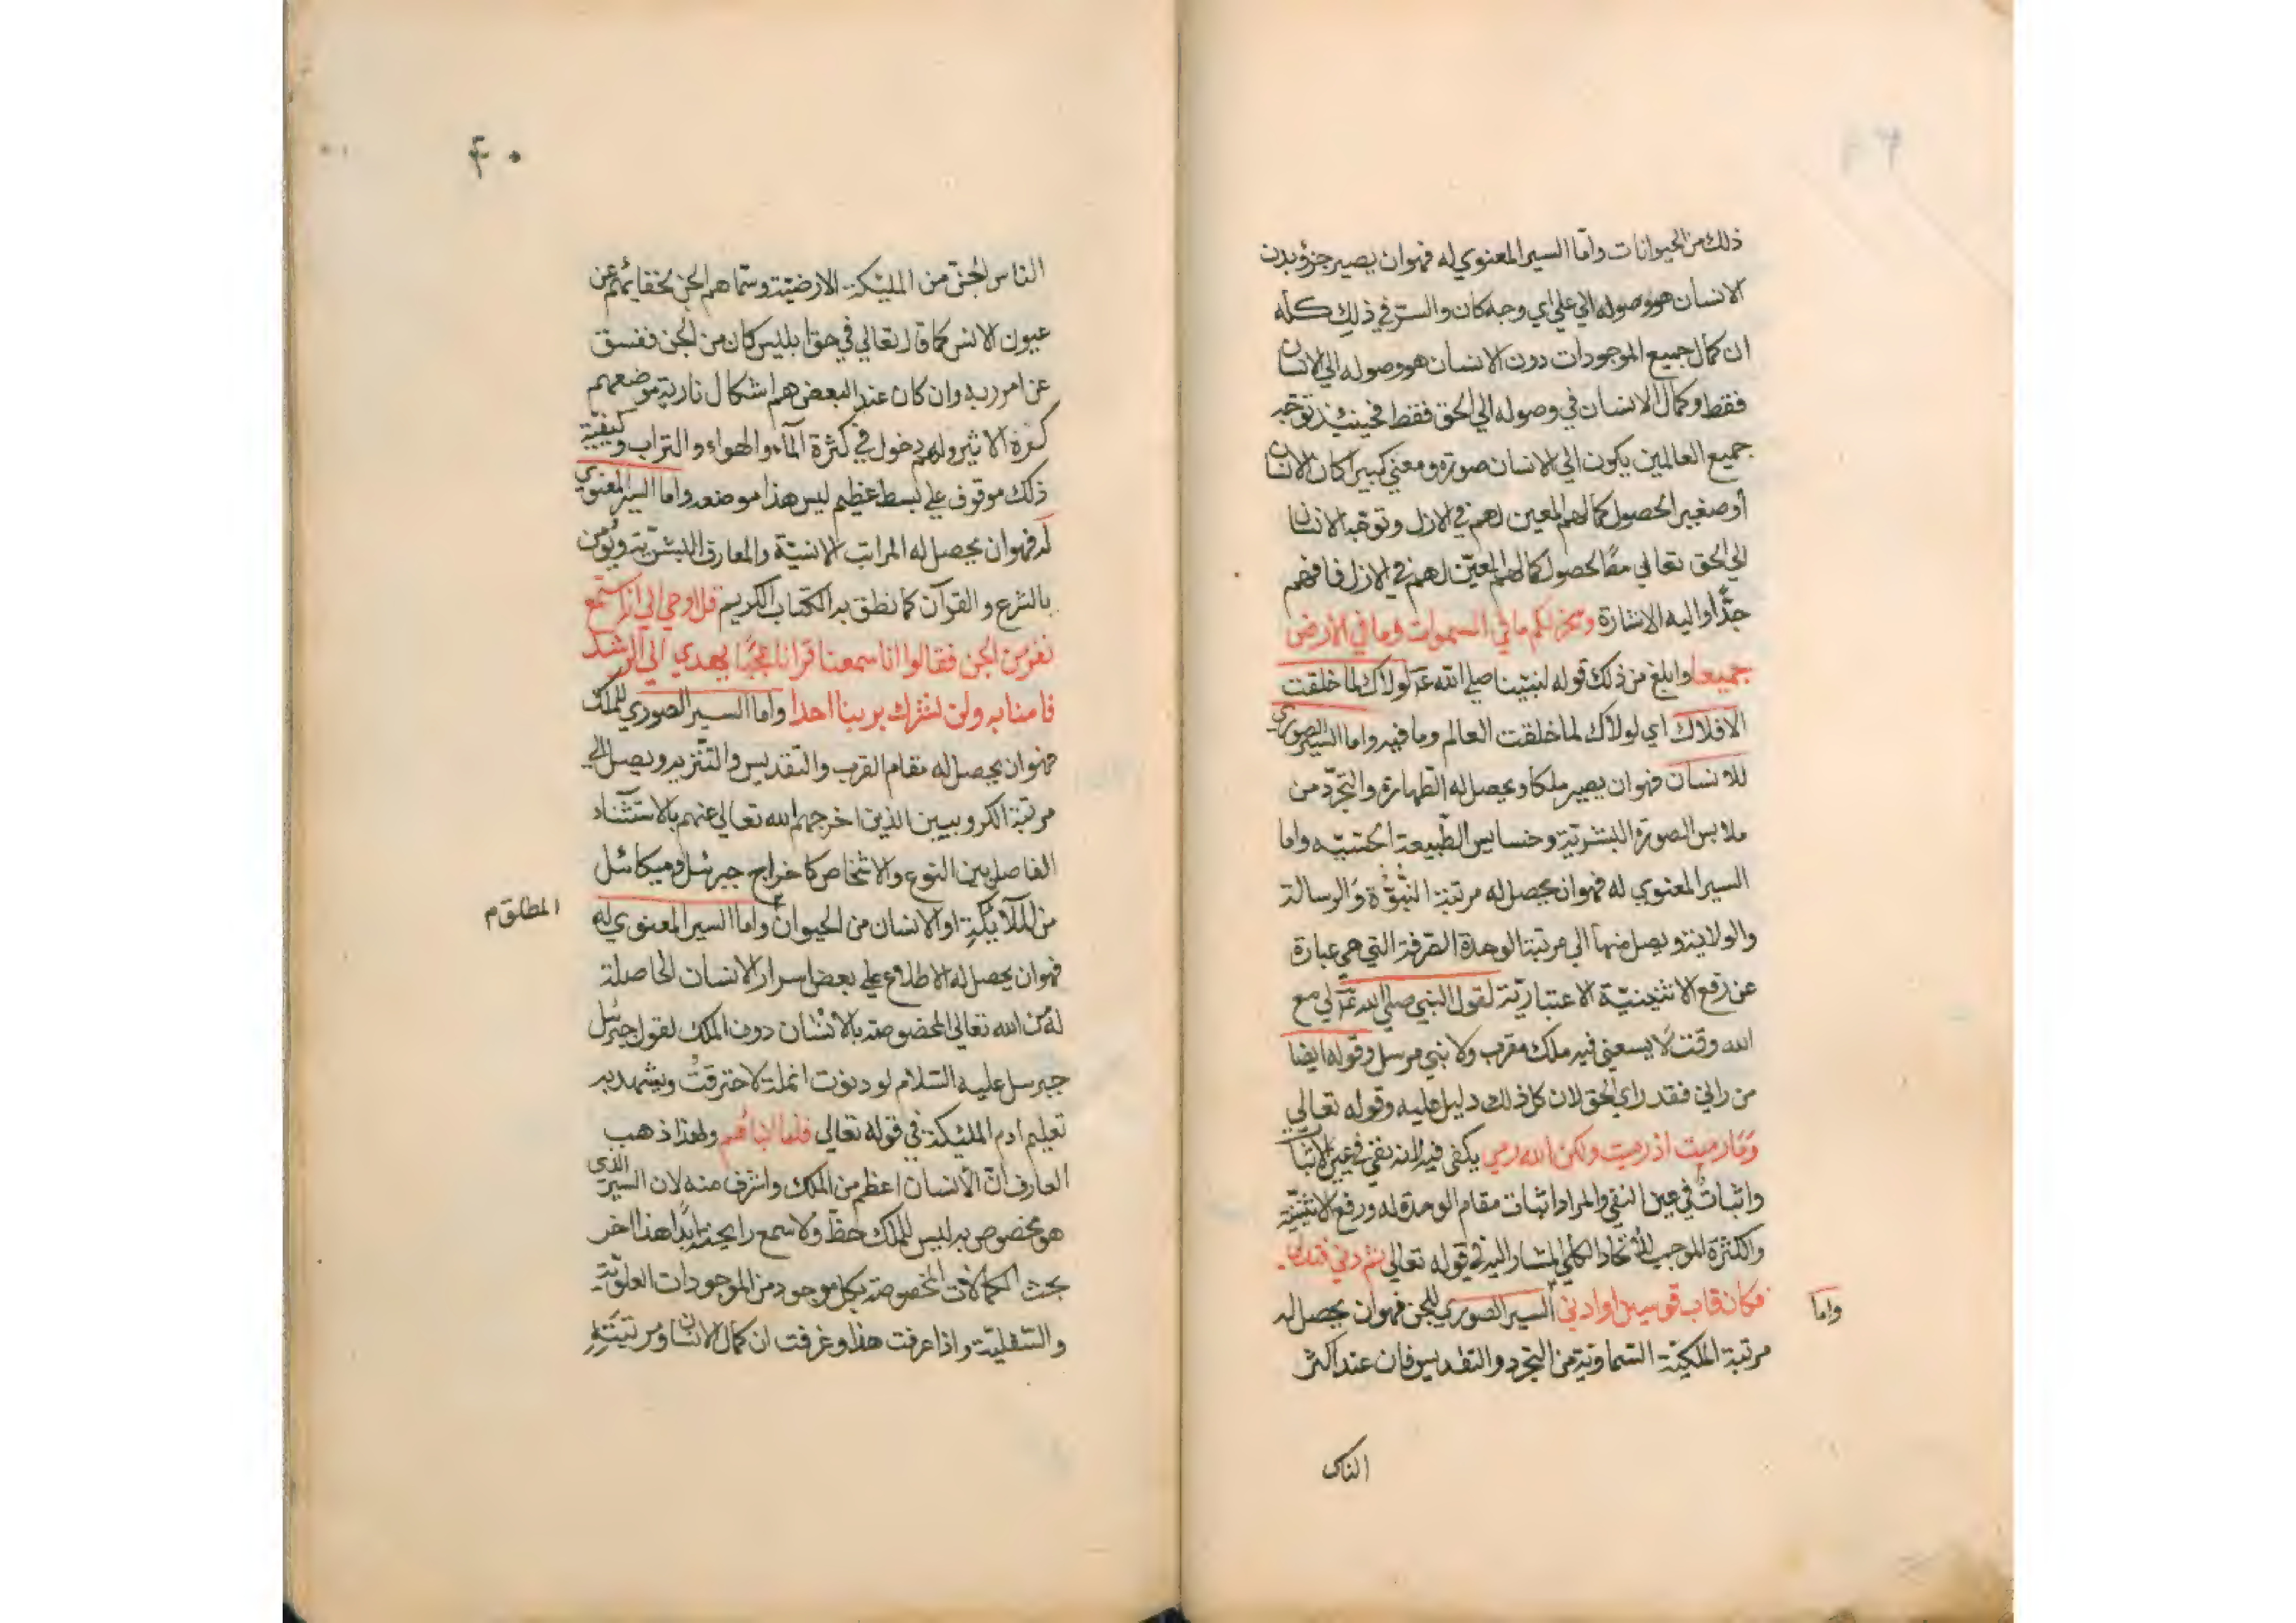 ذلك من الحيوانات واما السير المعنوي له فهو ان يصير جزؤ بدن
الانسان هو وصوله الي علي اي وجه كان والسر في ذلك كله
ان كمال جميع الموجودات دون الانسان هو وصوله الي الانسان
فقط وكمال الانسان في وصوله الي الحق فقط فحينئذ توجه
جميع العالمين يكون الي الانسان صورة ومعني كبيرا كان الانسان
أو صغيرا لحصول كمالهم المعين لهم في الازل وتوجه الانسان
الي الحق تعالي معًا لحصول كمالهم المعيّن لهم في الازل فافهم
جدًّا واليه الاشارة وسخر لكم ما في السموات وما في الارض
جميعا وابلغ من ذلك قوله لنبينا صلي الله عم لولاك لما خلقت
الافلاك اي لولاك لما خلقت العالم وما فيه واما السير الصوري
للانسان فهو ان يصير ملكا ويحصل له الطهارة والتجرّد من
ملابس الصورة البشرية وخسايس الطّبيعة الحسّيّه واما
السير المعنوي له فهو ان يحصل له مرتبة النبوّة والرسالة
والولاية ويصل منها الي مرتبة الوحدة الصرفة التي هي عبارة
عن رفع الاثنينيّة الاعتباريّة لقول النبي صلي الله عم لي مع
الله وقت لا يسعني فيه ملك مقرب ولا نبي مرسل وقوله ايضا
من راني فقد راي الحق لان كل ذلك دليل عليه وقوله تعالي
وَمَا رميت اذ رميت ولكن الله رمي يكفي فيه لانه نفي في عين الاثبات
واثبات في عين النفي والمراد اثبات مقام الوحدة له ورفع الاثنينيّة
والكثرة الموجب للاتحاد الكلي المشار اليه في قوله تعالي ثم دني فتدلي
فكان قاب قوسين او ادني السير الصوري للجن فهو ان يحصل له
واما
مرتبة الملكيّة السّماويّة من التجرد والتقديس فان عند اكثر
الناس
٤٠
الناس الجنّ من المليكة الارضيّة وسمّاهم الجن لخفايهم عن
عيون الانس كما قال تعالي في حق ابليس كان من الجن ففسق
عن امر ربه وان كان عند البعض هم اشكال نارية موضعهم
كرة الاثير ولهم دخول في كثرة الماء والهواء والتراب وكيفيّة
ذلك موقوف علي بسط عظيم ليس هذا موضعه واما السير المعنوي
له فهو ان يحصل له المراتب الانسيّة والمعارف البشريّة ويؤمن
بالشرع والقرآن كما نطق به الكتاب الكريم قل اوحي الي انه استمع
نفر من الجن فقالوا انا سمعنا قرانا عجبًا يهدي الي الرشد
فامنا به ولن نشرك بربنا احدا واما السير الصوري للملك
فهو ان يحصل له مقام القرب والتقديس والتّنزيه ويصل الي
مرتبة الكروبيين الذين اخرجهم الله تعالي عنهم بالاستثناء
الفاصل بين النوع والاشخاص كاخراج جبرئيل وميكائيل
من الملآئكة او الانسان من الحيوان واما السير المعنوي له
المطلق م
فهو ان يحصل له الاطلاع علي بعض اسرار الانسان الحاصلة
له من الله تعالي المخصوصة بالانسان دون الملك لقول جبرئيل
جبرسل عليه السّلام لو دنوت انملة لاحترقت ويشهد به
تعليم ادم المليكة في قوله تعالي فلما انباهم ولهذا ذهب
العارف انّ الأنسان اعظم من الملك واشرف منه لان السير الذي
هو مخصوص به ليس للملك حظّ ولا سمع رايحة ابدًا هذا اخر
بحث الكمالات المخصوصة بكل موجود من الموجودات العلويّة
والسّفليّة واذا عرفت هذا وعرفت ان كمال الانسان ومرتبته